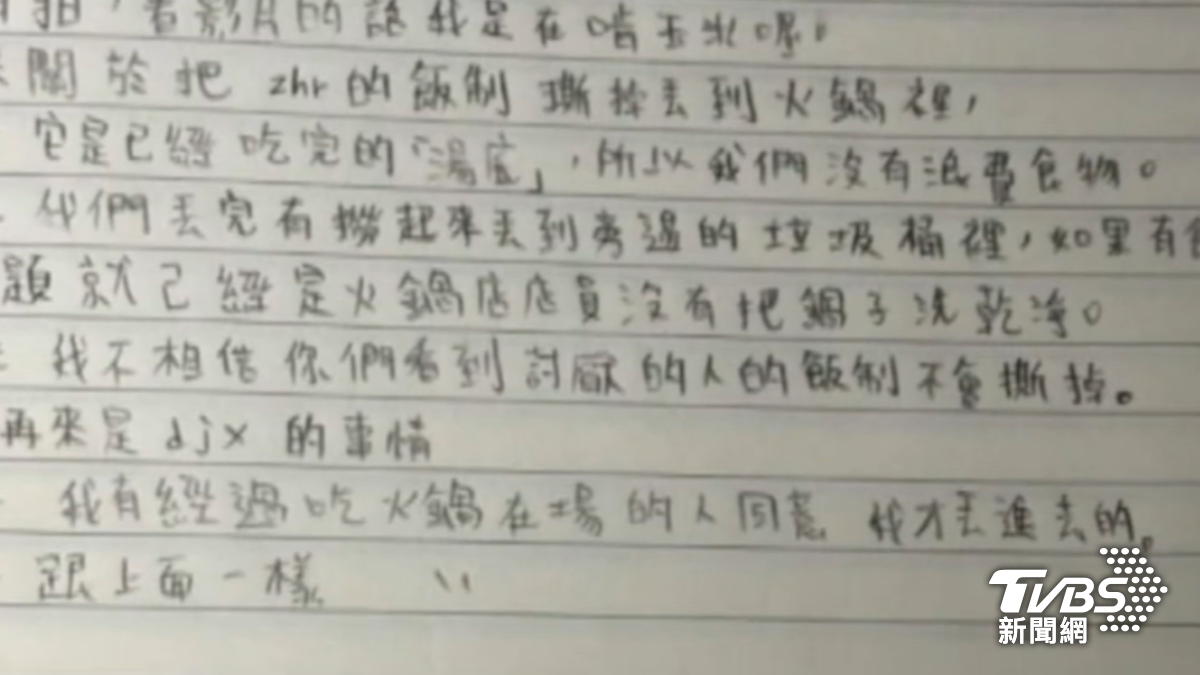 拍,看影片的話我是在啃玉米喔。
關於把 zhr 的飯制 撕掉丟到火鍋裡,
它是已經吃完的「湯底」,所以我們沒有浪費食物。
我們丟完有撈起來丟到旁邊的垃圾桶裡,如果有
題就己經是火鍋店店員沒有把鍋子洗乾淨。
我不相信你們看到討厭的人的飯制不會撕掉。
再來是 djx 的事情
我有經過吃火鍋在場的人同意 我才丟進去的。
跟上面一樣
TVBS
新聞網